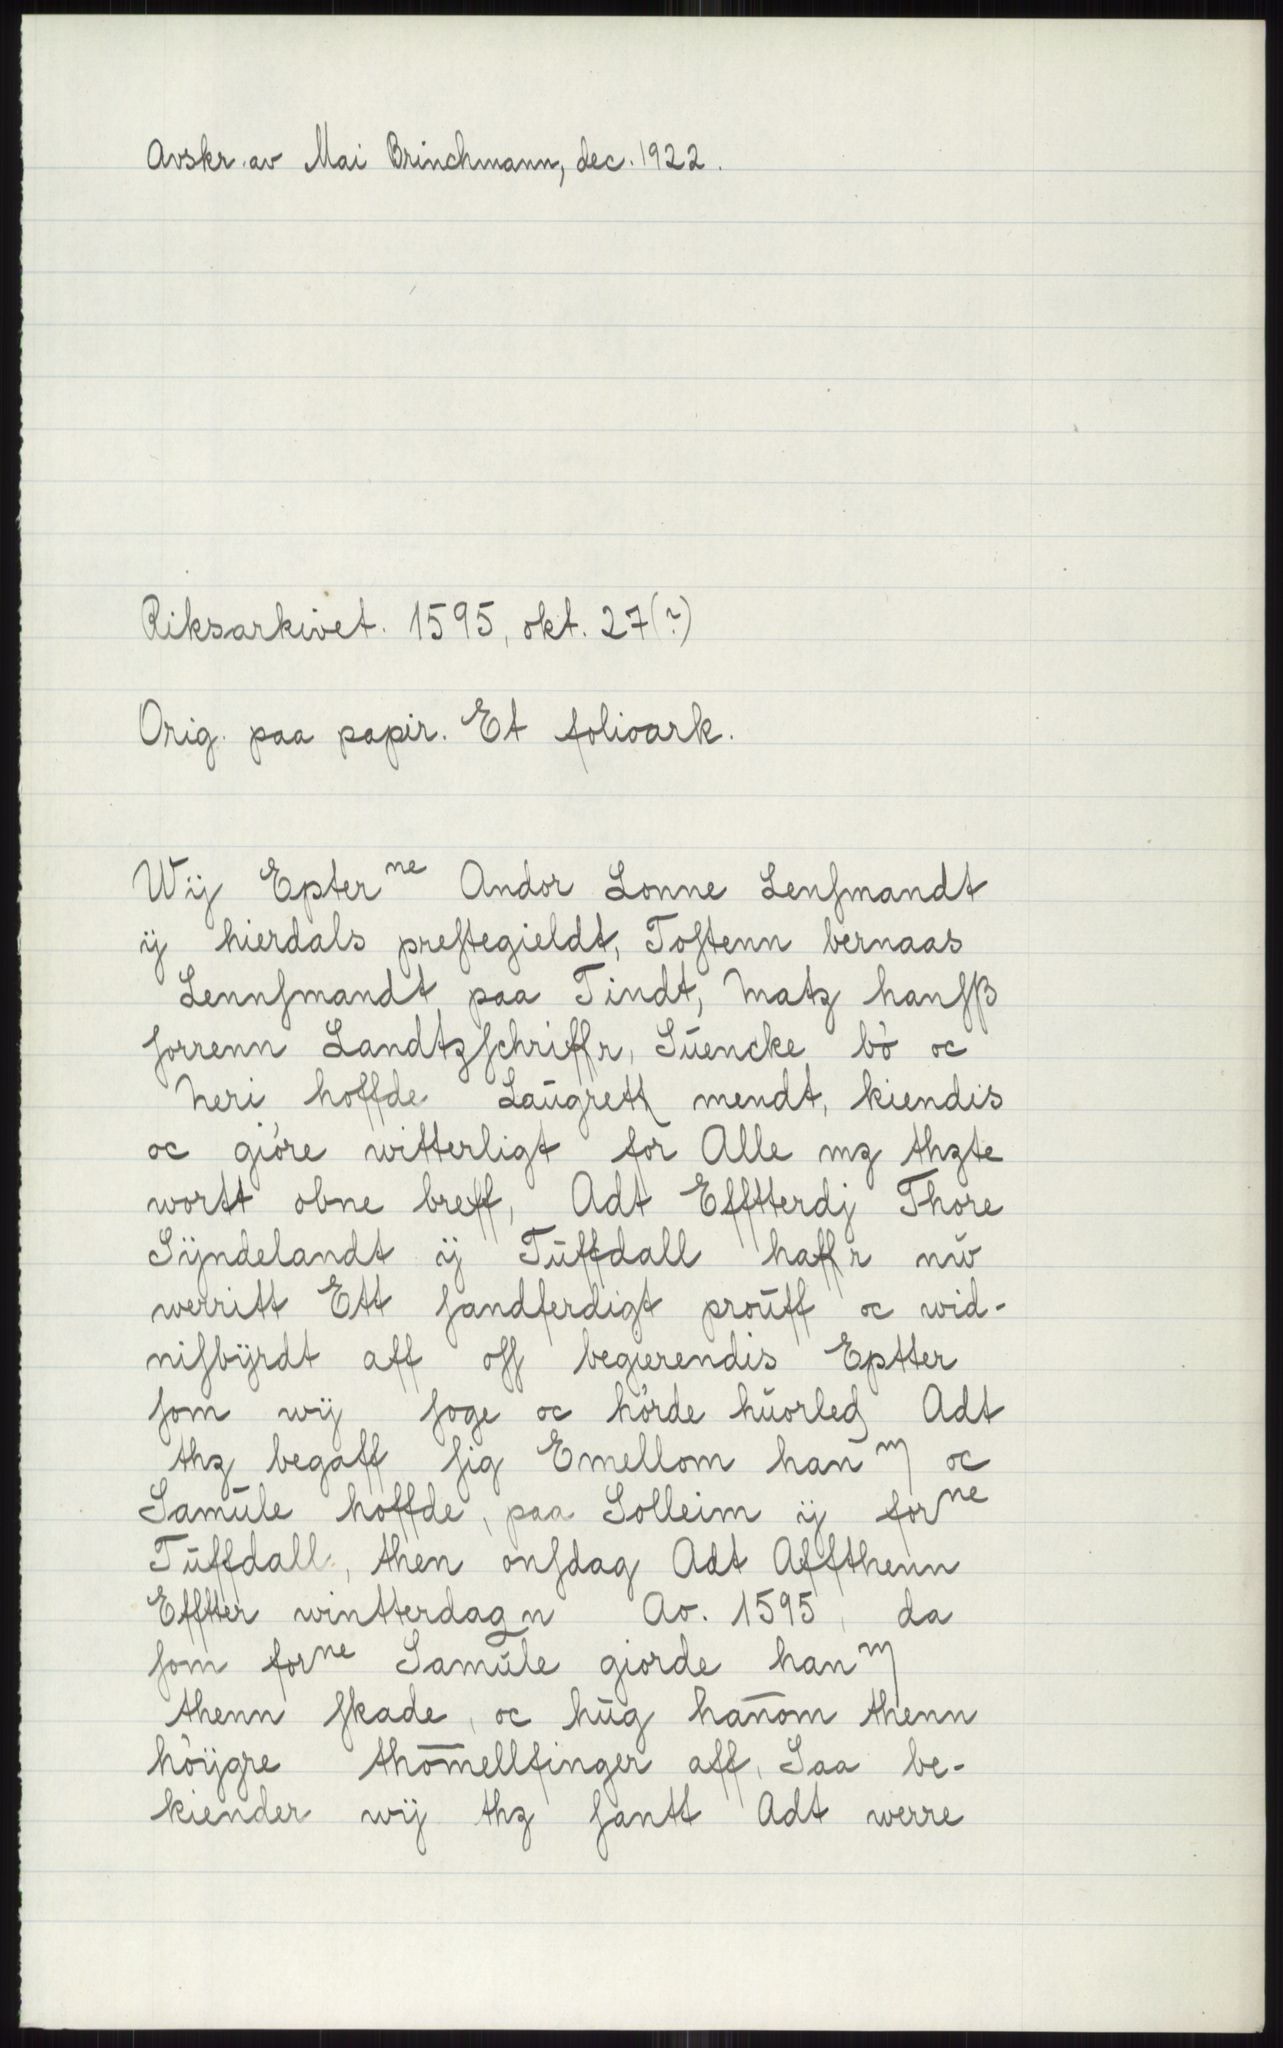 Avskr. av Mai Brinchmann, dec. 1922.
Riksarkivet. 1595, okt. 27(?)
Orig. paa papir. Et folioark.
Wij Epterⁿᵉ Andor Lonne Lenſmandt
ij hierdals preſtegieldt, Toſtenn bernaas
Lennſmandt paa Tindt, Matz hanſß
ſorrenn Landtzſchriffr, Sŭencke bö oc
Neri hoffde Laŭgrett mendt, kiendis
oc giöre witterligt for Alle mz thzte
wortt obne breff, Adt Efftterdj Thore
Sÿndelandt ij Tŭffdall haffr nŭ
werritt Ett ſandferdigt proŭff oc wid-
niſbÿrdt aff oſſ begierendis Eptter
ſom wij ſoge oc hörde hŭorled Adt
thz begaff ſig Emellom han̄ᵐ oc
Samŭle hoffde, paa Solleim ij forⁿᵉ
Tŭffdall, then onſdag Adt Affthenn
Efftter wintterdagn Ao. 1595, da
ſom forⁿᵉ Samŭle giorde hanᵐ
thenn ſkade, oc hŭg han̄om thenn
höÿgre thom̄ellfinger aff, Saa be-
kiender wij thz ſantt Adt werre